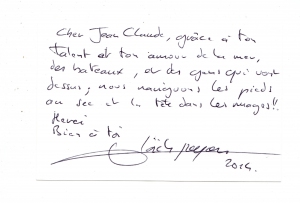 Cher Jean Claude, grâce à ton
talent et ton amour de la mer,
des bateaux, et des gens qui vont
dessus, nous naviguons les pieds
au sec et la tête dans les nuages!!
Merci
Bien à toi
2014.